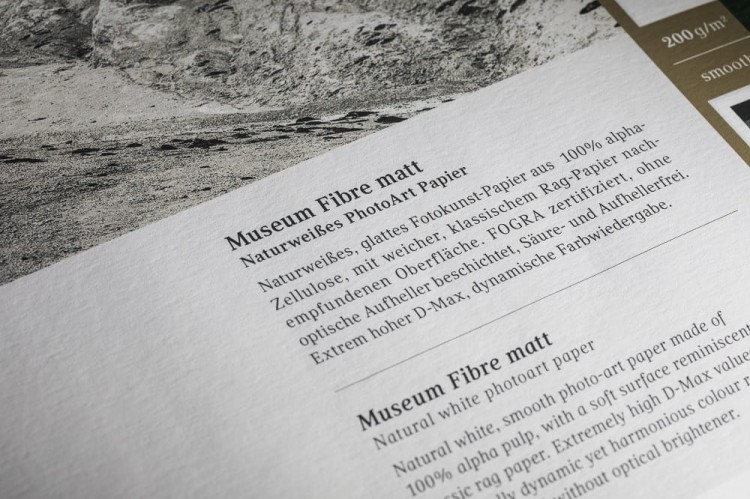 200 g/m²
smooth
Museum Fibre matt
Naturweißes PhotoArt Papier
Naturweißes, glattes Fotokunst-Papier aus 100% alpha-
Zellulose, mit weicher, klassischem Rag-Papier nach-
empfundenen Oberfläche. FOGRA zertifiziert, ohne
optische Aufheller beschichtet, Säure- und Aufhellerfrei.
Extrem hoher D-Max, dynamische Farbwiedergabe.
Museum Fibre matt
Natural white photoart paper
Natural white, smooth photo-art paper made of
100% alpha pulp, with a soft surface reminiscent
rag paper. Extremely high D-Max value
dynamic yet harmonious colour
without optical brightener.